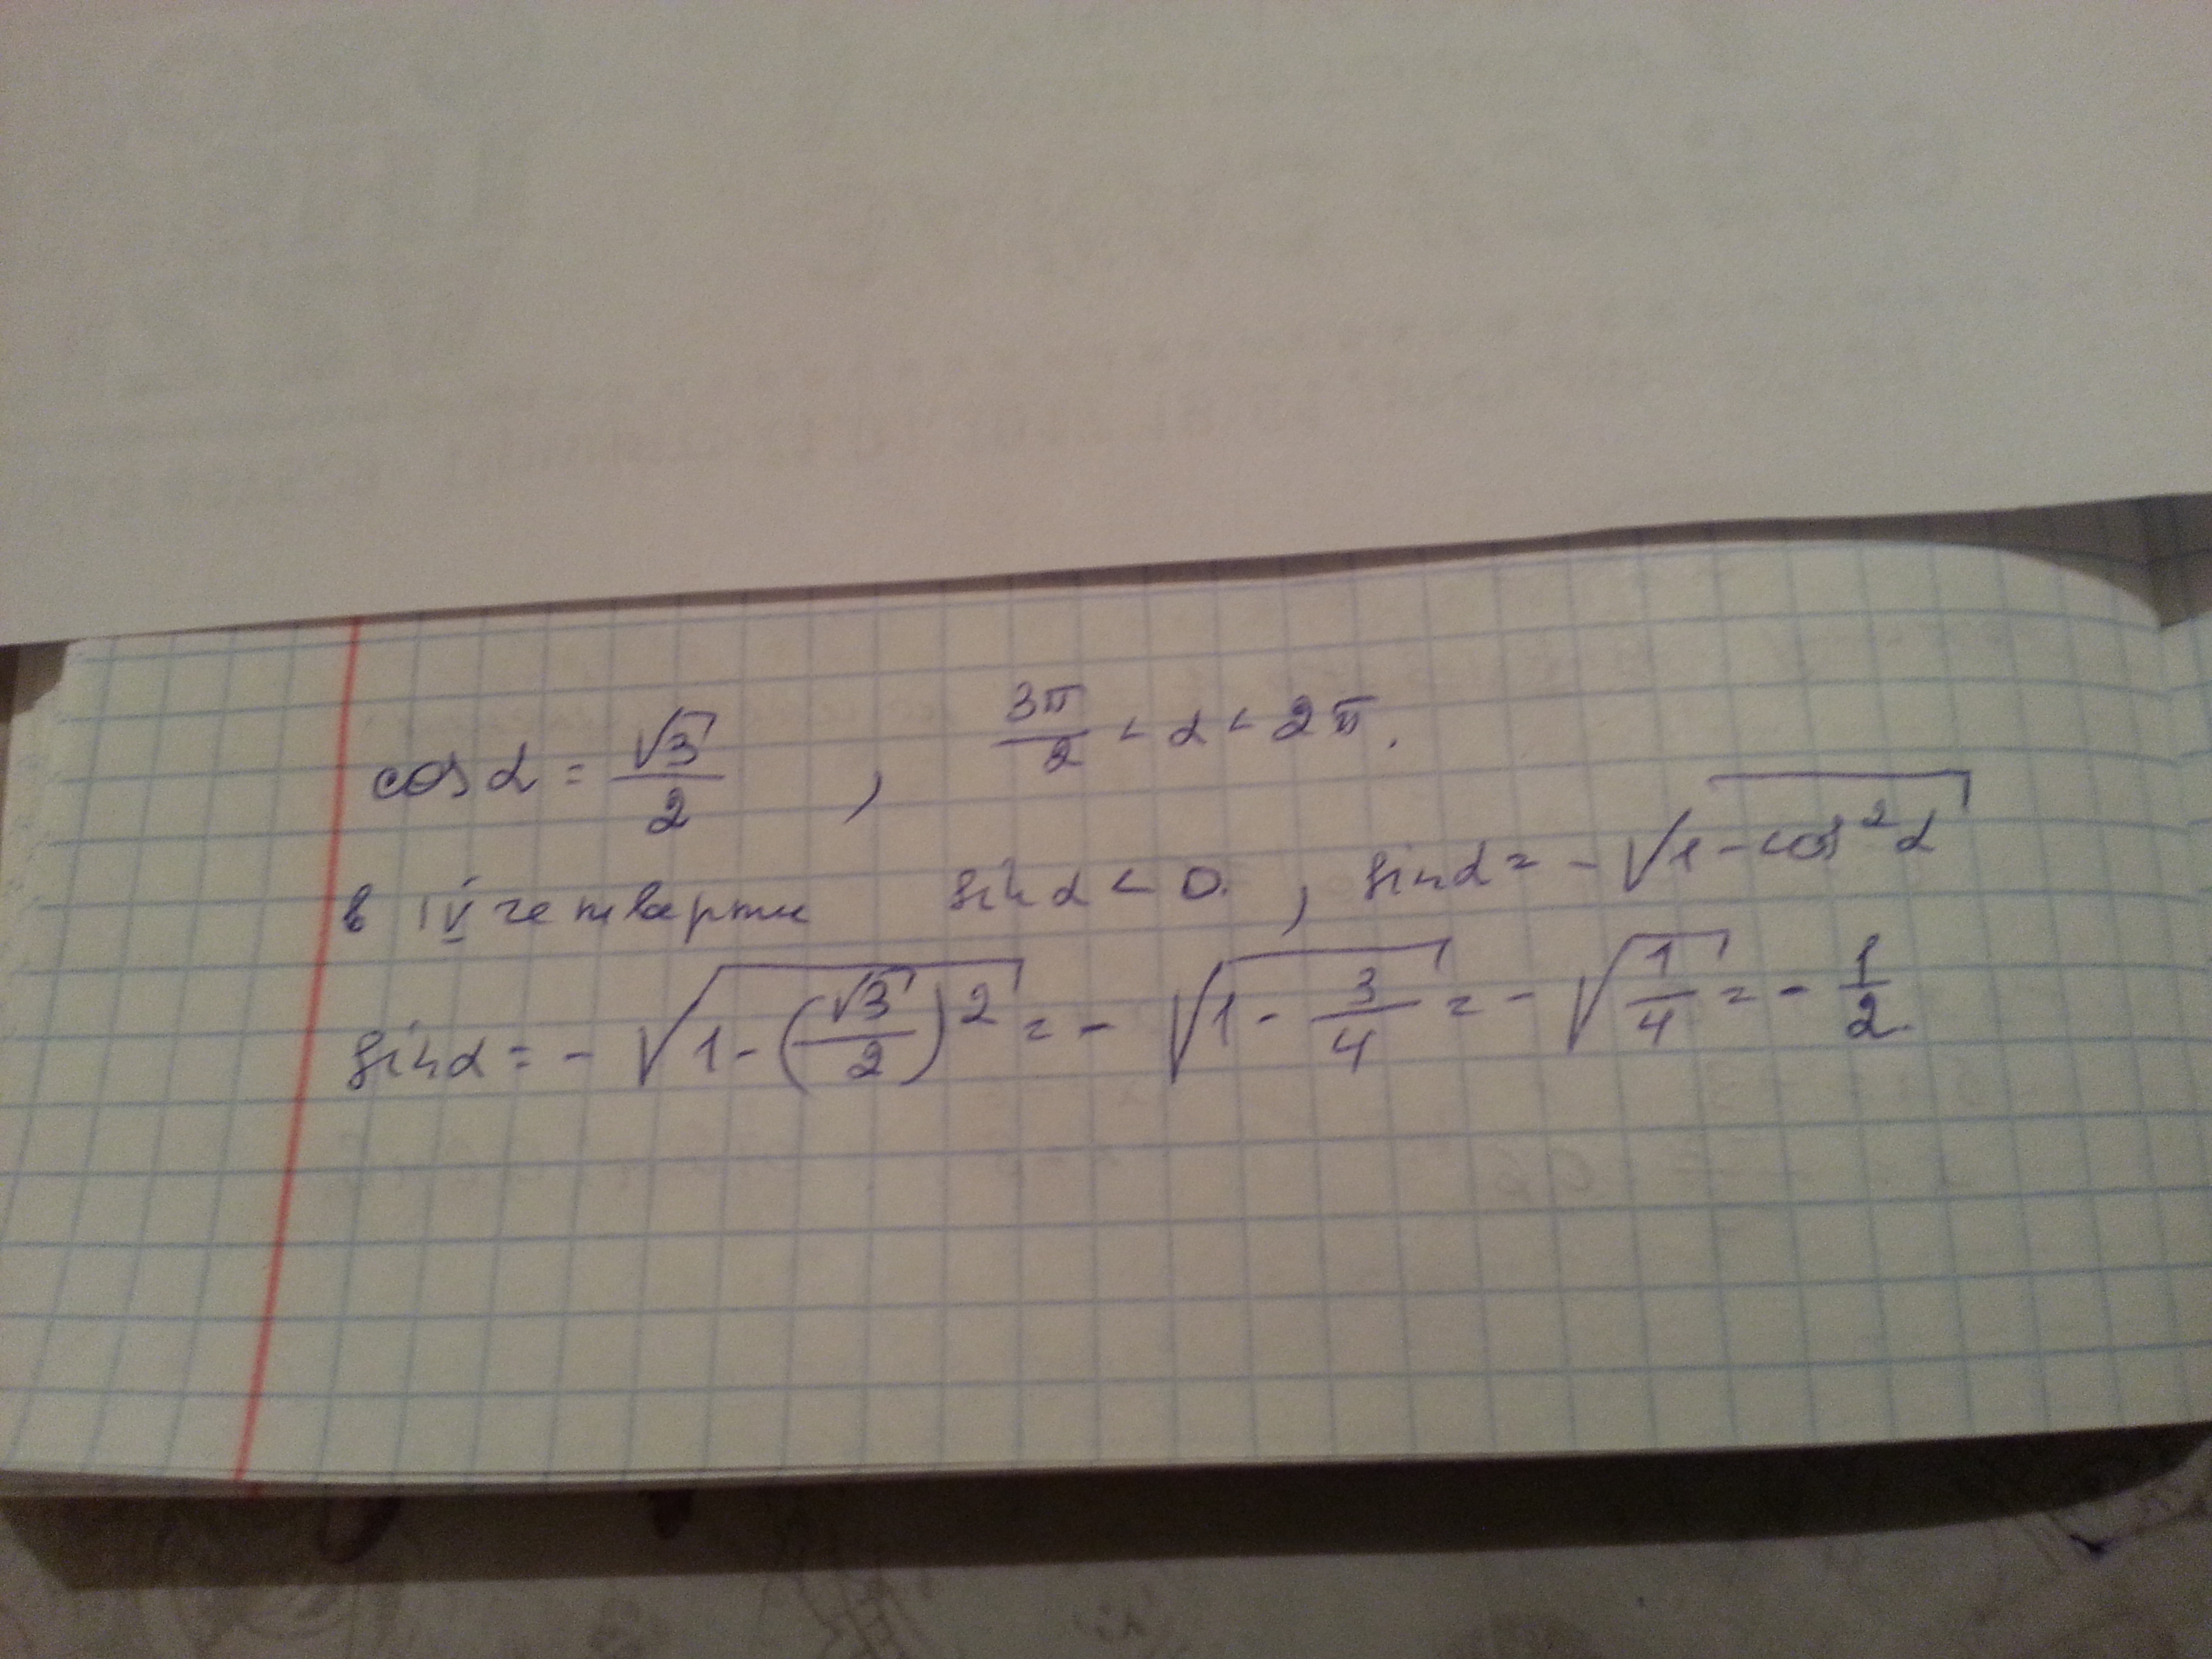 cos α = √3/2 , 3π/2 < α < 2π.
в IV четверти sin α < 0. , sin α = - √(1 - cos² α)
sin α = - √(1 - (√3/2)²) = - √(1 - 3/4) = - √(1/4) = - 1/2.